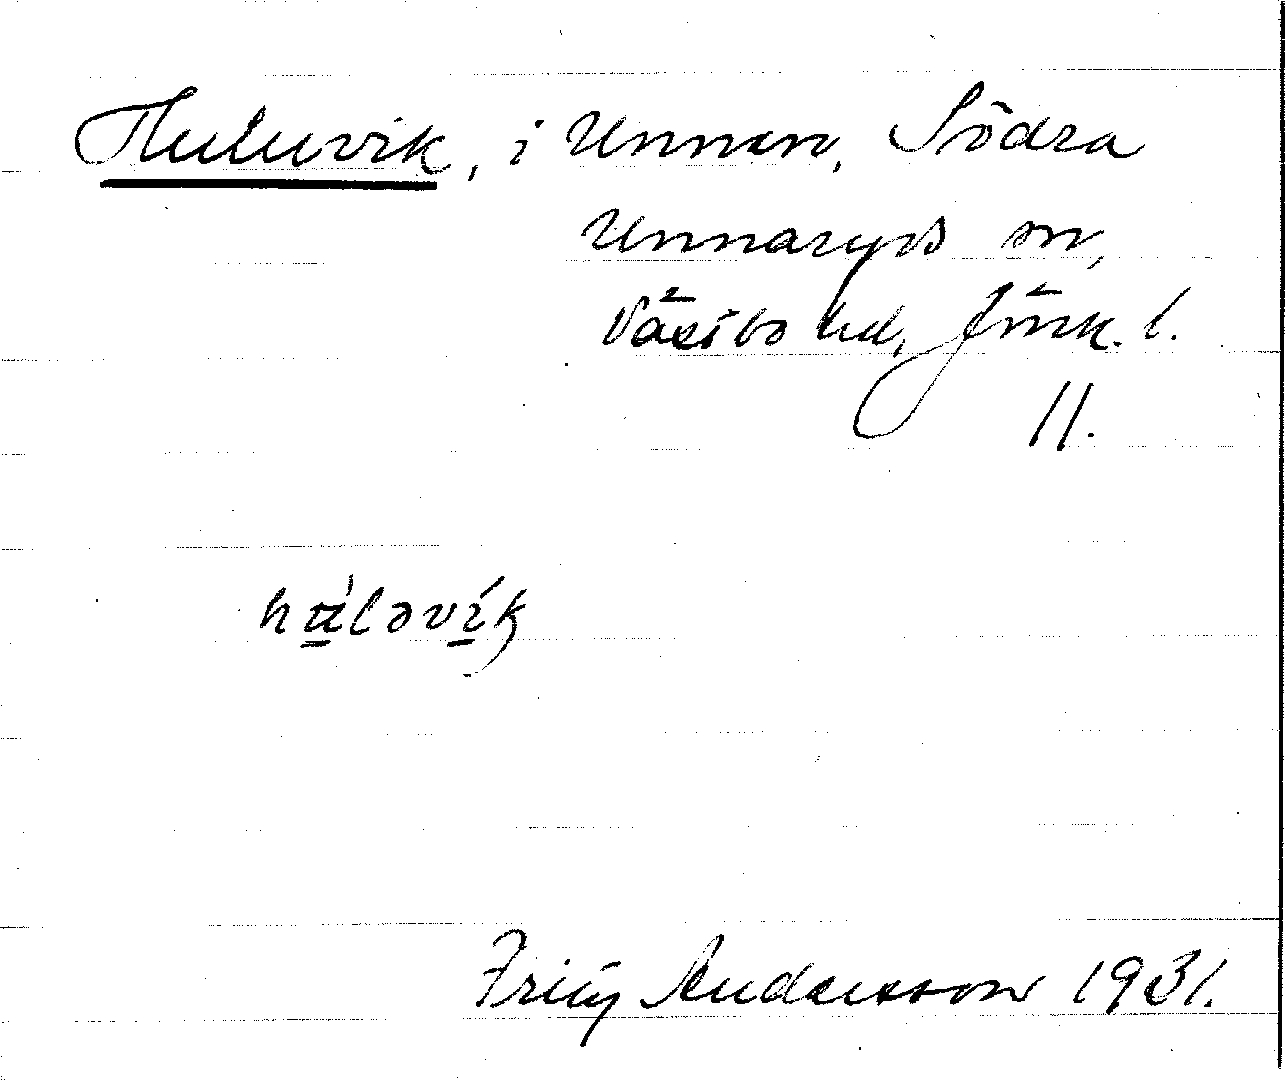 Huluvik, i Unnen, Södra
Unnaryds sn,
Västbo hd, Jönk. l.
11.
hu̲̍ləví̲k
Fritz Andersson 1931.